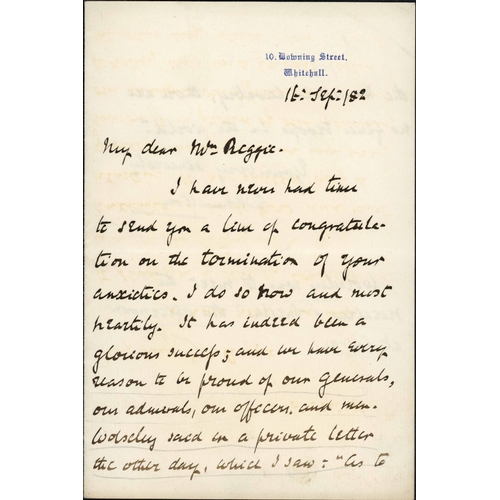 10. Downing Street,
Whitehall.
16th Sept /82
My dear Mrs Reggie.
I have never had time
to send you a line of congratula-
tion on the termination of your
anxieties. I do so now and most
heartily. It has indeed been a
glorious success; and we have every
reason to be proud of our generals,
our admirals, our officers, and men.
Wolseley said in a private letter
the other day, which I saw: "As to